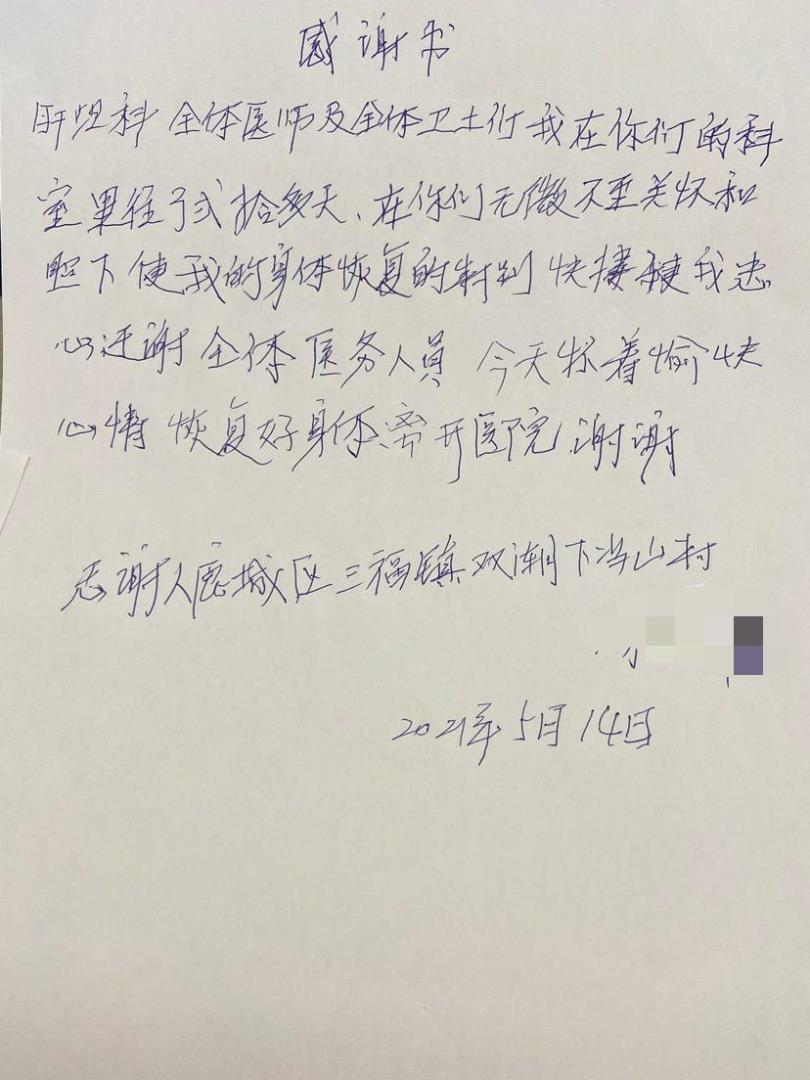 感谢书
肝胆科 全体医师及全体卫士们我在你们的科
室里径了弍拾多天、在你们无微不至关怀和
照下使我的身体恢复的特别快 健我忠
心还谢全体医务人員 今天怀着愉快
心情 恢复好身体、离开医院 谢谢
志谢人鹿城区三福镇双潮下岸山村
2021年5月14日